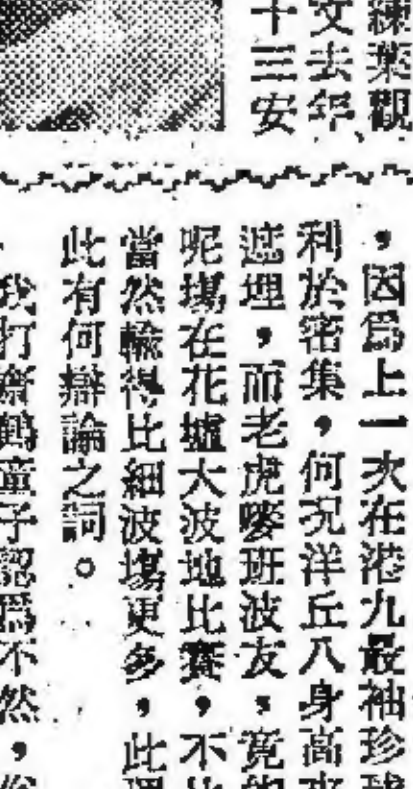 練葉觀
文去年
十三安
，因爲上一次在港九最袖珍球
利於密集，何況洋丘八身高
遮埋，而老虎嘜班波友，竟
呢塲在花墟大波地比賽，不
當然輸得比細波塲更多，此
此有何辯論之詞。
我打齋鶴童子認爲不然，